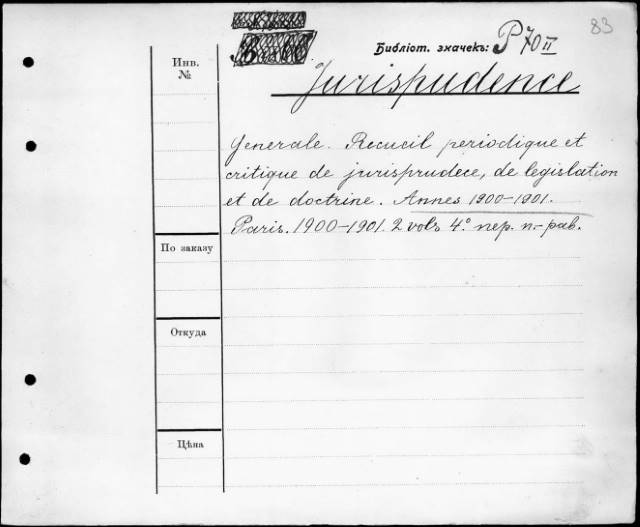 83
Библіот. значекъ: P 70 II
Инв.
№
Jurisprudence
Generale. Recueil periodique et
critique de jurisprudece, de legislation
et de doctrine. Annes 1900-1901.
Paris. 1900-1901. 2 vols 4º. пер. п.-раб.
По заказу
Откуда
Цѣна